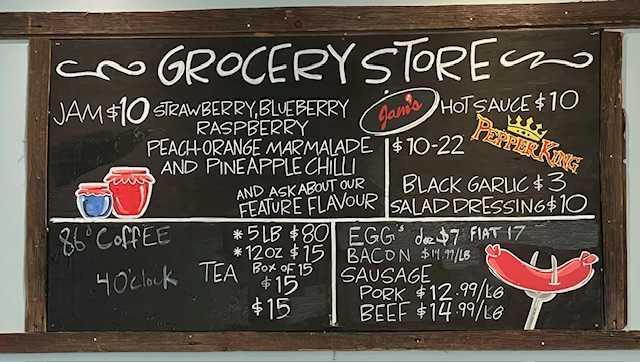 GROCERY STORE
JAM $10 STRAWBERRY, BLUEBERRY
RASPBERRY
PEACH-ORANGE MARMALADE
AND PINEAPPLE CHILLI
AND ASK ABOUT OUR
FEATURE FLAVOUR
Jam's
HOT SAUCE $10
$10-22
PEPPER KING
BLACK GARLIC $3
SALAD DRESSING $10
86° COFFEE
*5 LB $80
*12 OZ $15
4 O'clock
TEA BOX OF 15
$15
$15
EGG's doz $7 FlAT 17
BACON $14.99/LB
SAUSAGE
PORK $12.99/LB
BEEF $14.99/LB